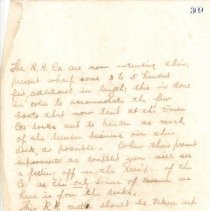 309
The R.R. Co. are now intending their
present wharf some 2 to 5 hundred
feet additional in length, this is done
in order to accommodate the few
boats that now land at the Town
Co docks and to handle as much
of the lumber business over their
dock as possible. When their present
improvements are completed you will see
a falling off in the Receipts of the
Co. as the only source of Revenue we
have is from the docks.
This R.R. matter should be taken up